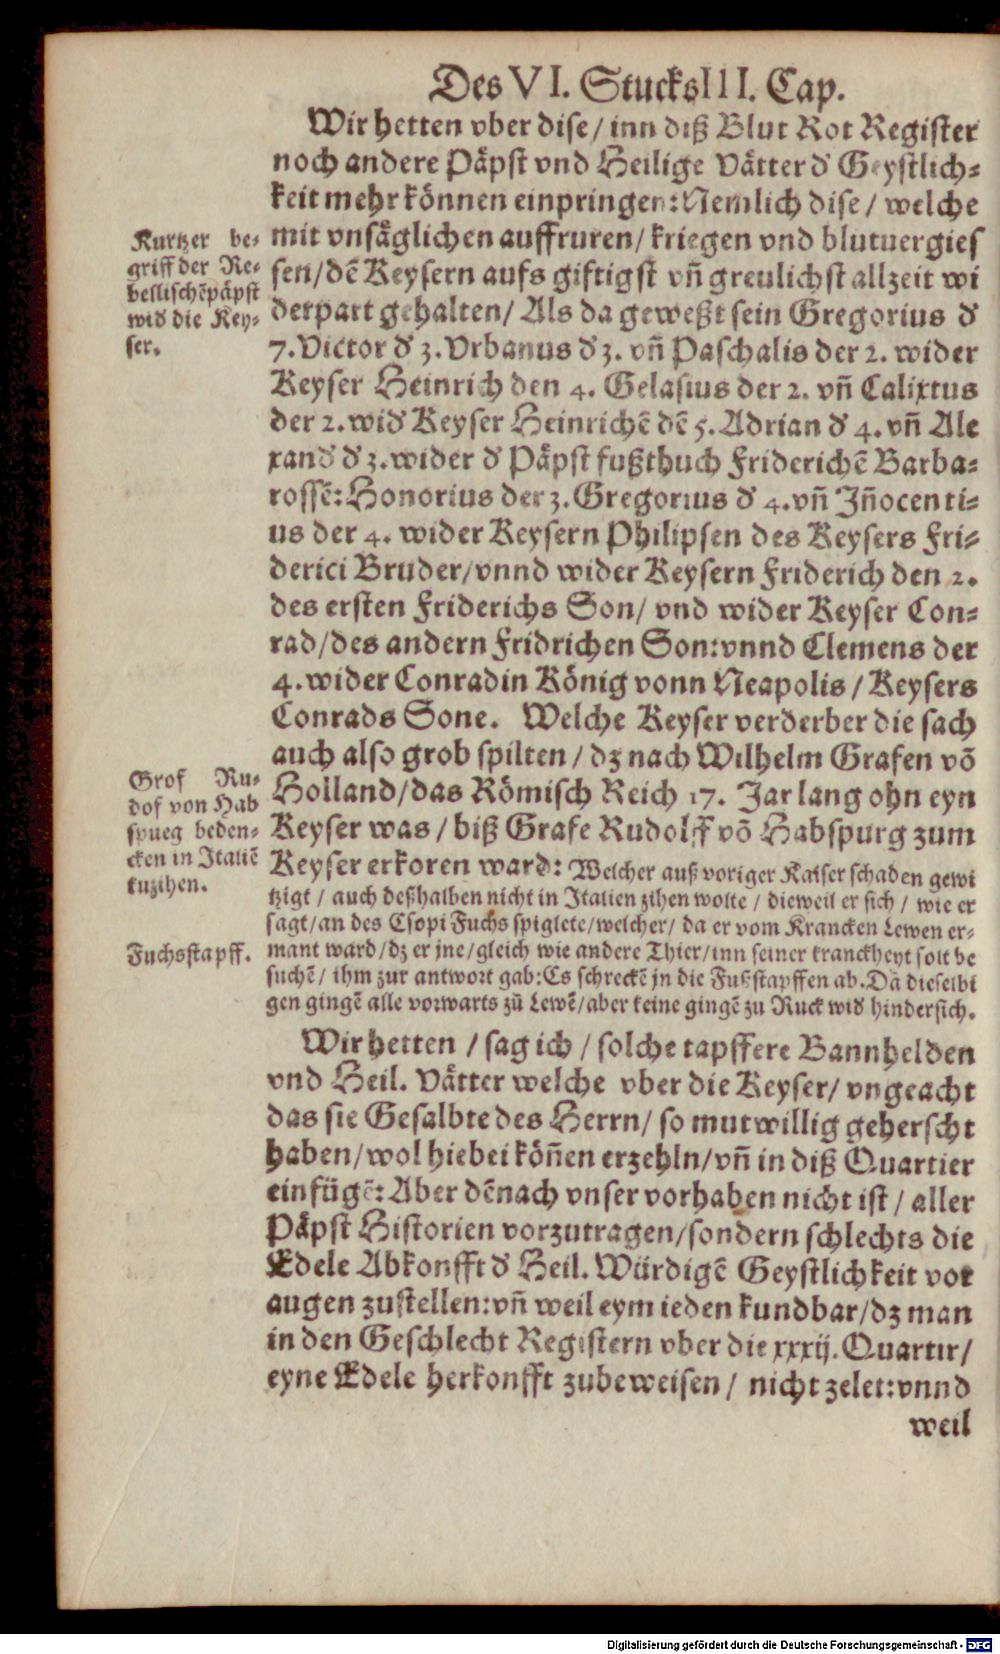 Des VI. Stucks III. Cap.
Wir hetten vber dise/ inn diß Blut Rot Register
noch andere Päpst vnd Heilige Vätter d' Geystlich-
keit mehr können einpringen: Nemlich dise/ welche
mit vnsäglichen auffruren/ kriegen vnd blutuergies
sen/ dē Keysern aufs giftigst vn̄ greulichst allzeit wi
derpart gehalten/ Als da geweßt sein Gregorius d'
7. Victor d' 3. Vrbanus d' 3. vn̄ Paschalis der 2. wider
Keyser Heinrich den 4. Gelasius der 2. vn̄ Calixtus
der 2. wid' Keyser Heinrichē dē 5. Adrian d' 4. vn̄ Ale
xand' d' 3. wider d' Päpst fußthuch Friderichē Barba-
rossē: Honorius der 3. Gregorius d' 4. vn̄ Jn̄ocenti-
us der 4. wider Keysern Philipsen des Keysers Fri-
derici Bruder/ vnnd wider Keysern Friderich den 2.
des ersten Friderichs Son/ vnd wider Keyser Con-
rad/ des andern Fridrichen Son: vnnd Clemens der
4. wider Conradin König vonn Neapolis/ Keysers
Conrads Sone. Welche Keyser verderber die sach
auch also grob spilten/ dz nach Wilhelm Grafen vō
Holland/ das Römisch Reich 17. Jar lang ohn eyn
Keyser was/ biß Grafe Rudolff vō Habspurg zum
Keyser erkoren ward: Welcher auß voriger Kaiser schaden gewi
tzigt/ auch deßhalben nicht in Italien zihen wolte/ dieweil er sich/ wie er
sagt/ an des Esopi Fuchs spiglete/ welcher/ da er vom Krancken Lewen er-
mant ward/ dz er jne/ gleich wie andere Thier/ inn seiner kranckheyt solt be
suchē/ ihm zur antwort gab: Es schreckē jn die Fußstapffen ab. Dā dieselbi
gen gingē alle vorwarts zū Lewē/ aber keine gingē zu Ruck wid' hindersich.
Wir hetten/ sag ich/ solche tapffere Bannhelden
vnd Heil. Vätter welche vber die Keyser/ vngeacht
das sie Gesalbte des Herrn/ so mutwillig geherscht
haben/ wol hiebei kön̄en erzehln/ vn̄ in diß Quartier
einfügē: Aber dēnach vnser vorhaben nicht ist/ aller
Päpst Historien vorzutragen/ sondern schlechts die
Edele Abkonfft d' Heil. Würdigē Geystlichkeit vor
augen zustellen: vn̄ weil eym ieden kundbar/ dz man
in den Geschlecht Registern vber die xxxij. Quartir/
eyne Edele herkonfft zubeweisen/ nicht zelet: vnnd
weil
Kurtzer be-
griff der Re-
bellischēpäpst
wid' die Key-
ser.
Grof Ru-
dof von Hab
spueg beden-
cken in Italiē
kuzihen.
Fuchsstapff.
Digitalisierung gefördert durch die Deutsche Forschungsgemeinschaft - DFG